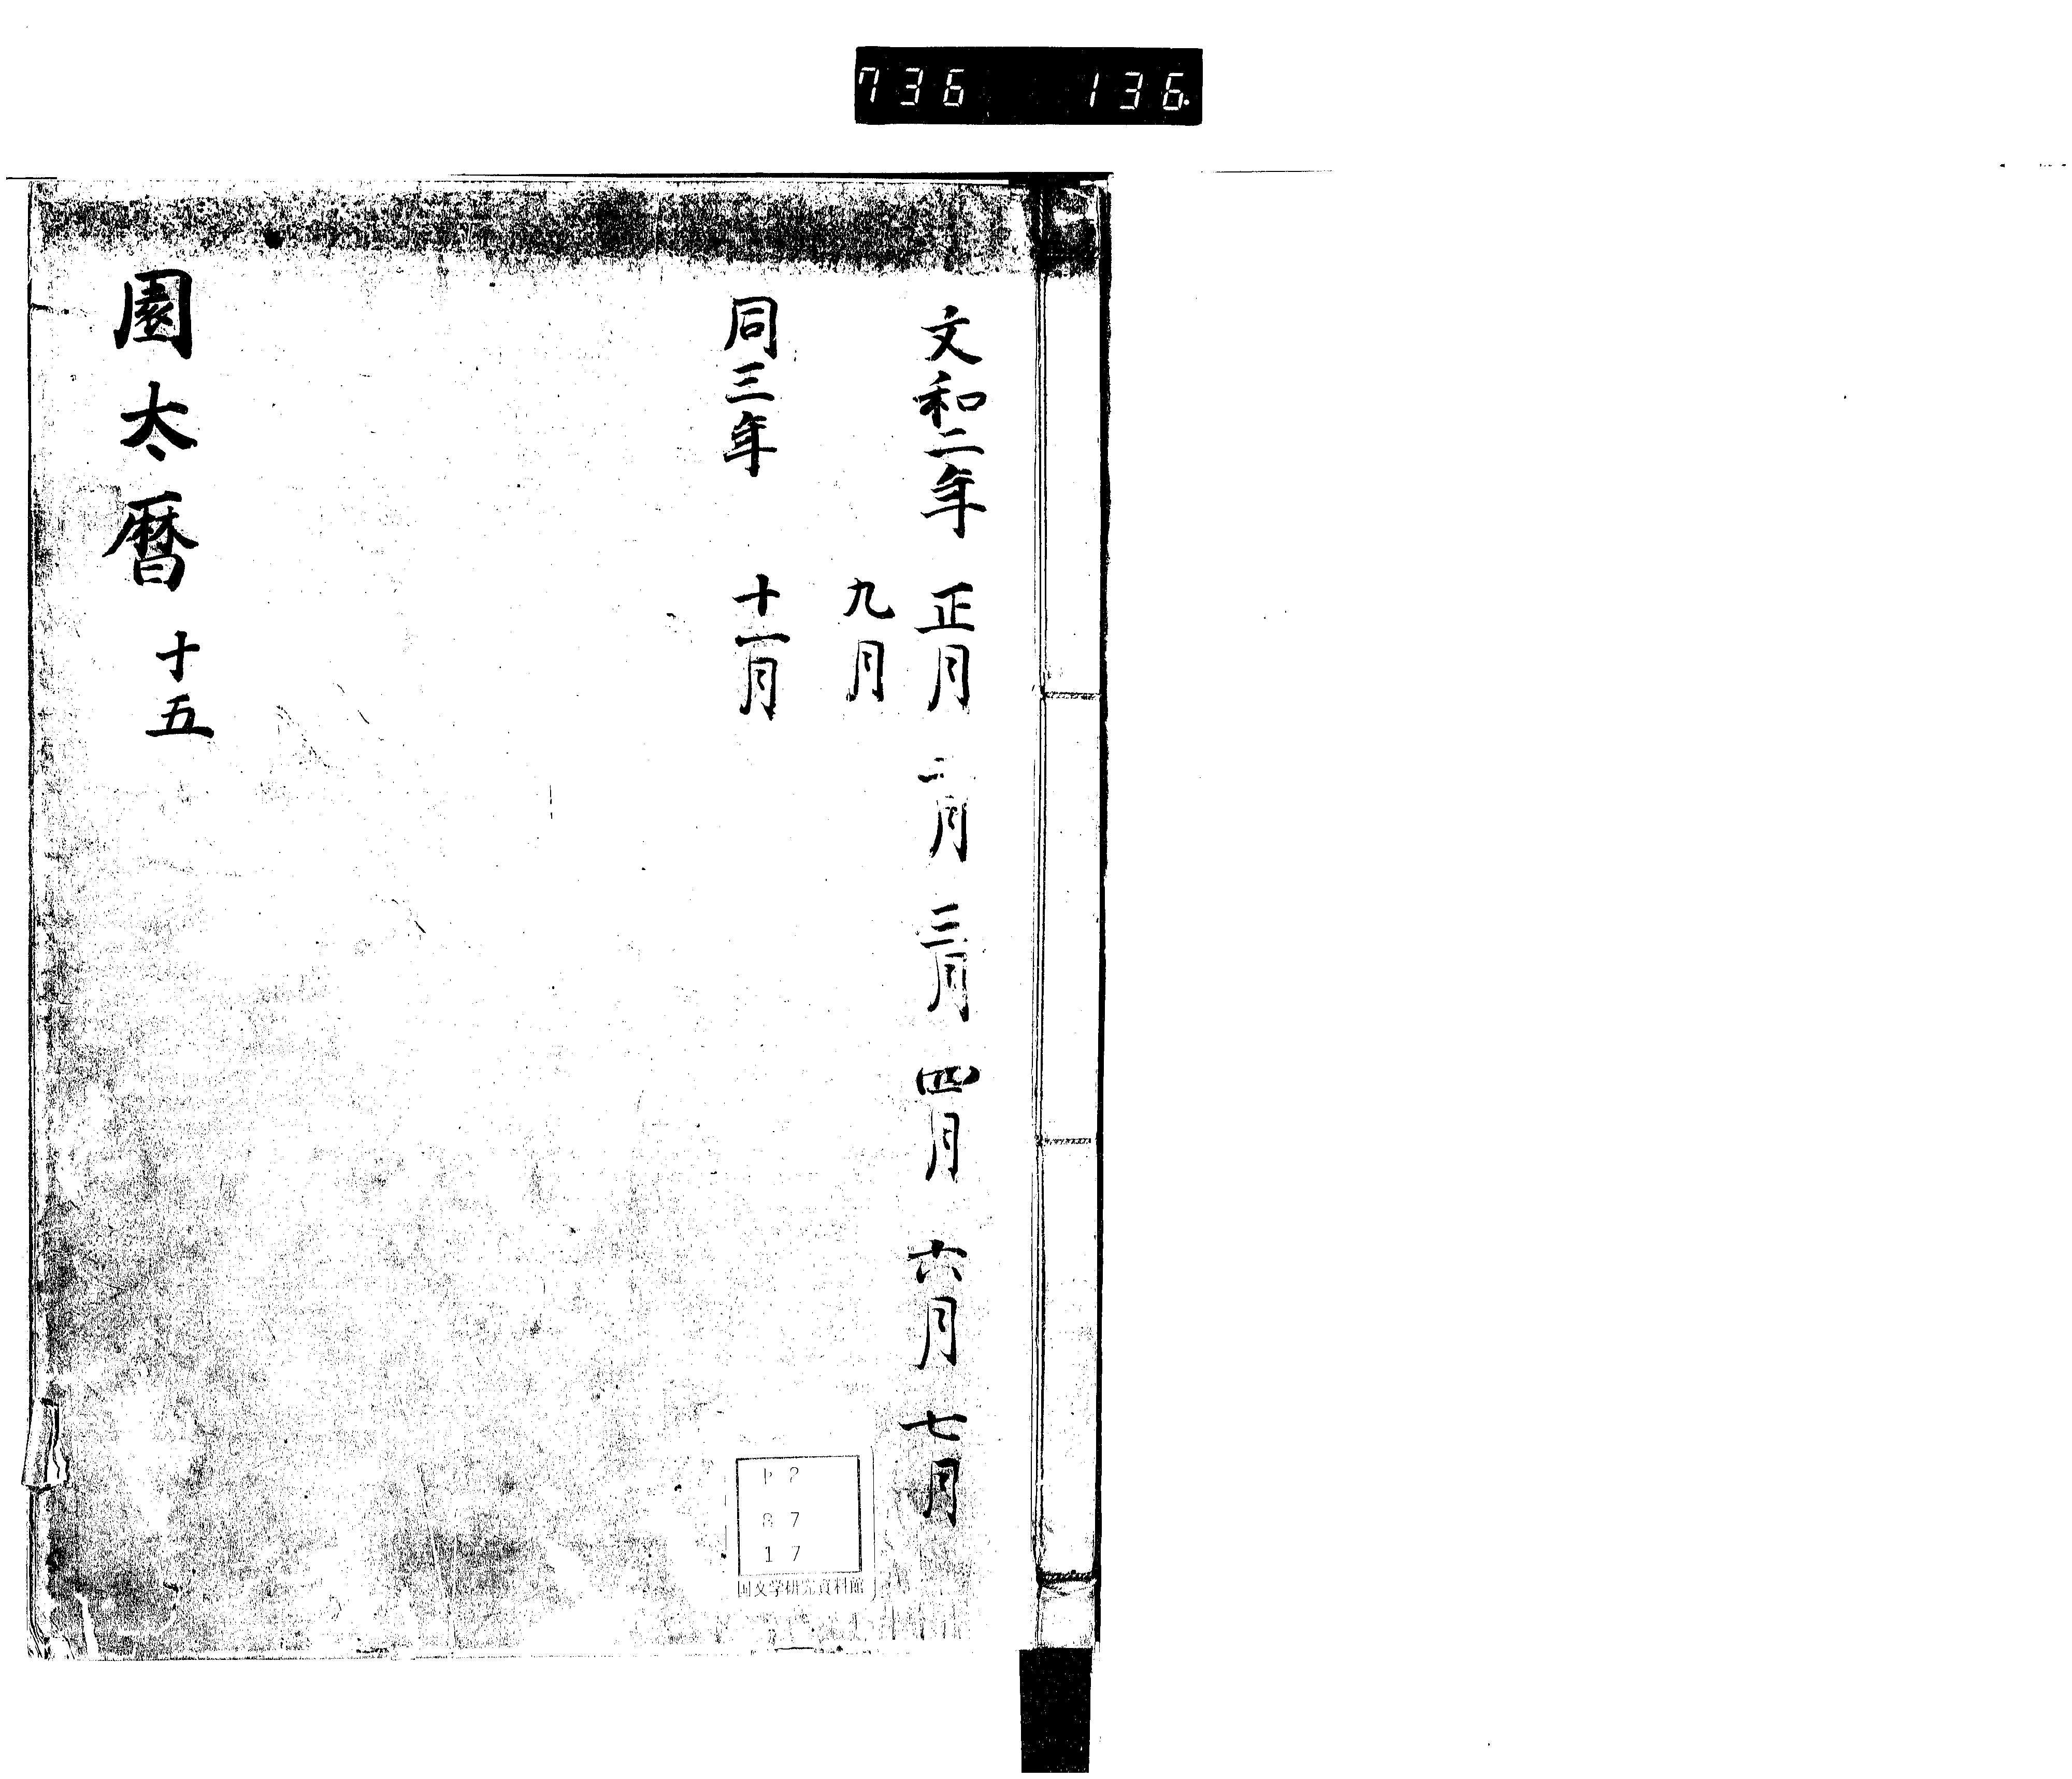 736 136
文和二年 正月 二月 三月 四月 六月 七月
九月
同三年 十一月
園太暦 十五
ヤ2
87
17
国文学研究資料館